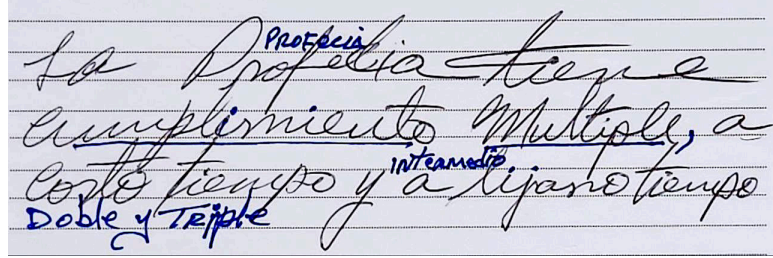 PROFECIA
La Profecia tiene
cumplimiento Multiple, a
INTERMEDIO
corto tiempo y a lijano tiempo
Doble y Triple